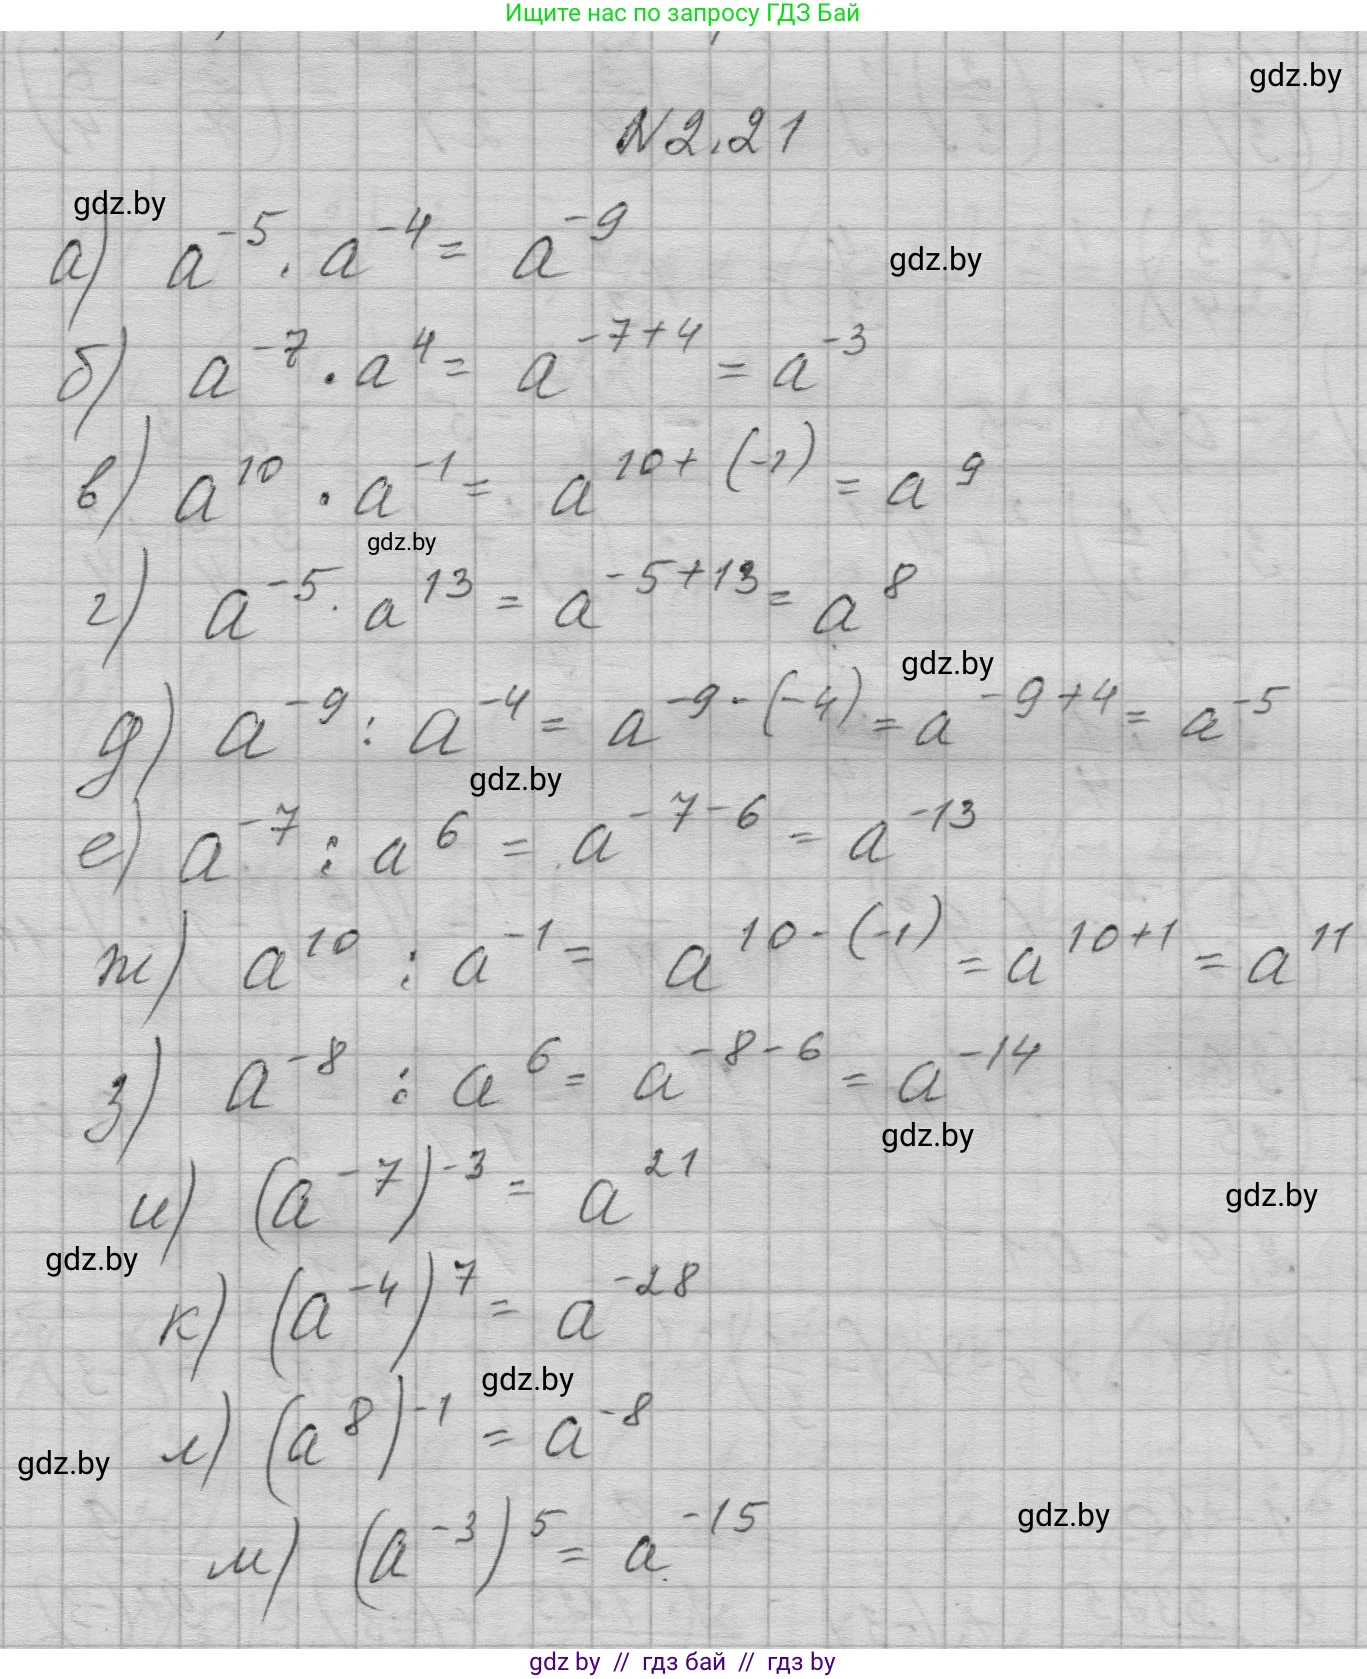 Ищите нас по запросу ГДЗ Бай
gdz.by
N 2.21
gdz.by
а) a^{-5} · a^{-4} = a^{-9}
gdz.by
б) a^{-7} · a^{4} = a^{-7+4} = a^{-3}
в) a^{10} · a^{-1} = a^{10+(-1)} = a^{9}
gdz.by
г) a^{-5} · a^{13} = a^{-5+13} = a^{8}
gdz.by
д) a^{-9} : a^{-4} = a^{-9-(-4)} = a^{-9+4} = a^{-5}
gdz.by
е) a^{-7} : a^{6} = a^{-7-6} = a^{-13}
ж) a^{10} : a^{-1} = a^{10-(-1)} = a^{10+1} = a^{11}
з) a^{-8} : a^{6} = a^{-8-6} = a^{-14}
gdz.by
и) (a^{-7})^{-3} = a^{21}
gdz.by
gdz.by
к) (a^{-4})^{7} = a^{-28}
gdz.by
л) (a^{8})^{-1} = a^{-8}
gdz.by
gdz.by
м) (a^{-3})^{5} = a^{-15}
gdz by // гдз бай // гдз by